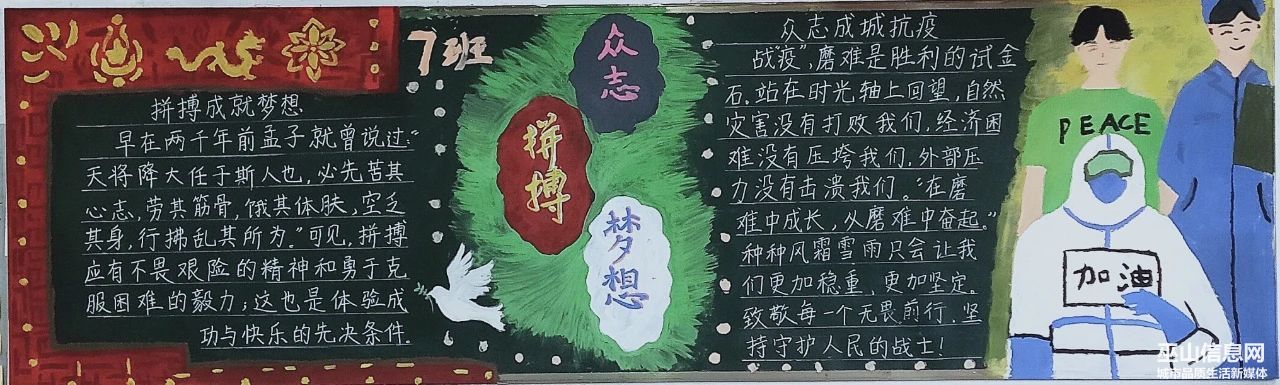 7班
拼搏成就梦想
早在两千年前孟子就曾说过:“
天将降大任于斯人也,必先苦其
心志,劳其筋骨,饿其体肤,空乏
其身,行拂乱其所为。”可见,拼搏
应有不畏艰险的精神和勇于克
服困难的毅力;这也是体验成
功与快乐的先决条件.
众志
拼搏
梦想
众志成城抗疫
战“疫”,磨难是胜利的试金
石.站在时光轴上回望,自然
灾害没有打败我们,经济困
难没有压垮我们,外部压
力没有击溃我们。“在磨
难中成长,从磨难中奋起。”
种种风霜雪雨只会让我
们更加稳重,更加坚定。
致敬每一个无畏前行,坚
持守护人民的战士!
PEACE
加油
巫山信息网
城市品质生活新媒体